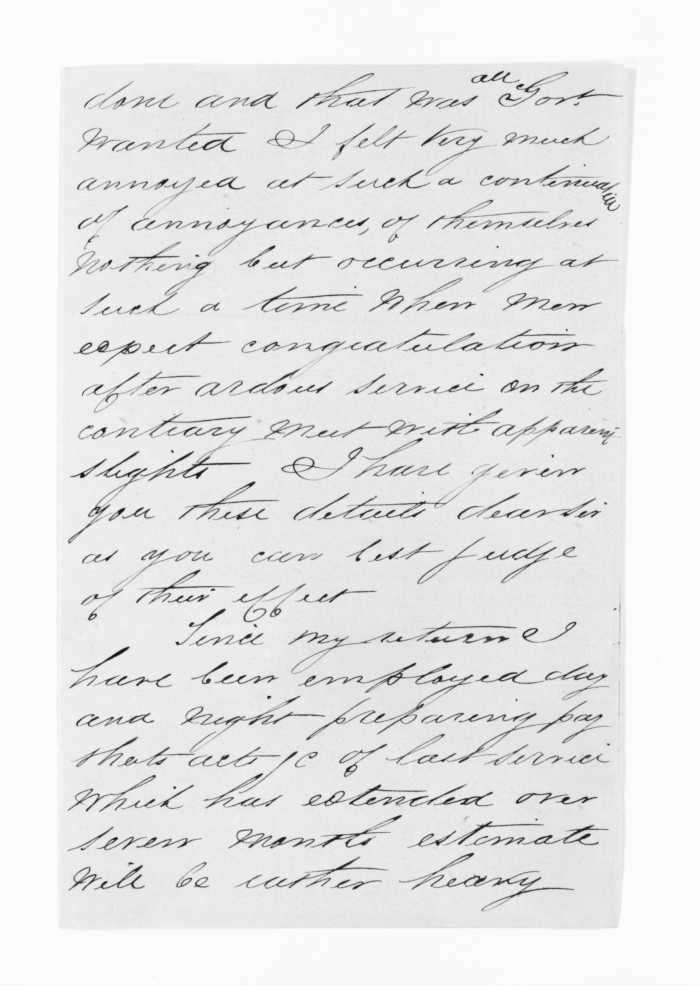 done and that was all Govt.
wanted I felt very much
annoyed at such a continuation
of annoyances, of themselves
nothing but occurring at
such a time when men
expect congratulation
after ardous service on the
contrary meet with apparent
slights I have given
you these details dear sir
as you can best judge
of their effect
Since my return I
have been employed day
and night preparing pay
shets acts &c of last service
which has extended over
seven months estimate
will be rather heavy